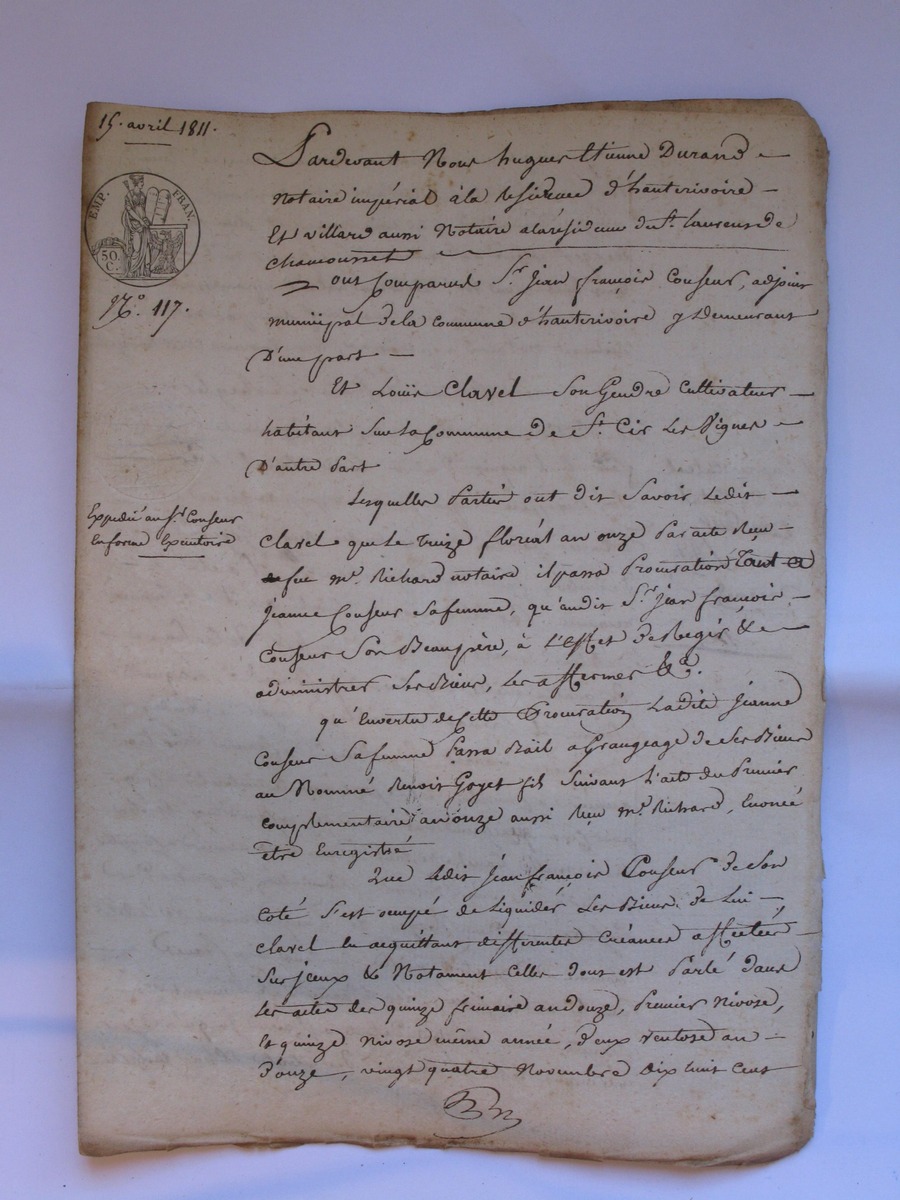 15. avril 1811.
EMP. FRAN.
50. C.
N.º 117.
Expedié au Sr. Couseur
En forme Exécutoire
Pardevant Nous hugues Etienne Durand
Notaire impérial à la residence d'hauterivoire
Et villard aussi Notaire a la résidence de St. Laurens de
Chamousset
ont Comparud Sr. Jean françois Couseur, adjoint
municipal de la Commune d'hauterivoire y Demeurant
D'une part
Et Louis Clavel Son Gendre Cultivateur
habitant Sur la Commune de St. Cir Les Vignes
D'autre Part
Lesquelles Parties ont dit Savoir Ledit
Clavel que Le treize floréal an onze Par acte Reçu
me. Richard notaire il passa Procuration tant a
Jeanne Couseur Sa femme, qu'audit Sr. Jean françois
Couseur Son Beaupère, à L'Effet de Regir &
administrer Ses Biens, Les affermer &a.
qu'En vertu de Cette Procuration Ladite Jeanne
Couseur Sa femme Passa Bail a Grangeage de Ses Biens
au Nommé Benoit Goyet fils Suivant L'acte du Premier
complementaire an onze aussi Reçu me. Richard, Enoncé
être Enregistré
Que Ledit Jean françois Couseur de Son
Coté S'est ocupé de Liquider Les Biens de Lui
Clavel En acquittant differentes Créances affectées
Sur iceux & Notament Celles dont est Parlé dans
Les actes des quinze frimaire an douze, Premier Nivose,
Et quinze Nivose même année, Deux ventose an
Douze, vingt quatre Novembre dix huit Cent